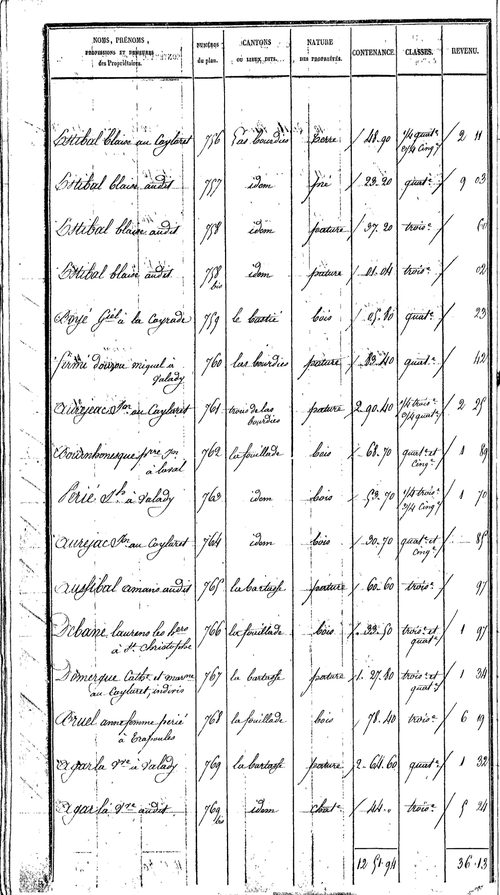 NOMS, PRÉNOMS, PROFESSIONS ET DEMEURES des Propriétaires. NUMÉROS du plan. CANTONS OU LIEUX DITS. NATURE DES PROPRIÉTÉS. CONTENANCE. CLASSES. REVENU.
Estibal blaise au Cayluret 756 las bourdies terre 48.90 1/4 quat.e 3/4 cinq.e 2 11
Estibal blaise audit 757 idem pré 23.20 quat.e 9 03
Estibal blaise audit 758 idem pature 37.20 trois.e 60
Estibal blaise audit 758 bis idem pature 01.04 trois.e 02
à la Cayrade 759 le bastié bois 05.80 quat.e 23
miquel à Valady 760 las bourdies pature 83.40 quat.e 42
aurejac au Cayluret 761 trous de las bourdies pature 2.90.40 1/4 trois.e 3/4 quat.e 2 25
Bournhonesque à laval 762 la fouillade bois 68.70 quat.e et cinq.e 1 89
Perié à Valady 763 idem bois 53.70 1/4 trois.e 3/4 cinq.e 1 70
aurejac au Cayluret 764 idem bois 30.70 quat.e et cinq.e 85
aussibal amans audit 765 la bartasse pature 60.60 trois.e 97
Debane laurens les hers à St. Christophe 766 la fouillade bois 1.33.50 trois.e et quat.e 1 97
Domergue Cath.e et marre au Cayluret, indivis 767 la bartasse pature 1.27.80 trois.e et quat.e 1 34
Bruel anne femme perié à 768 la fouillade bois 78.40 trois.e 6 19
agar la Vve à Valady 769 la bartasse pature 2.64.60 quat.e 1 32
agar la Vve audit 769 bis idem chat.e 44. trois.e 5 24
12 51.94 36.13